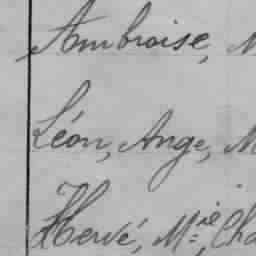 Ambroise,
Léon, Ange,
Hervé, M.ie